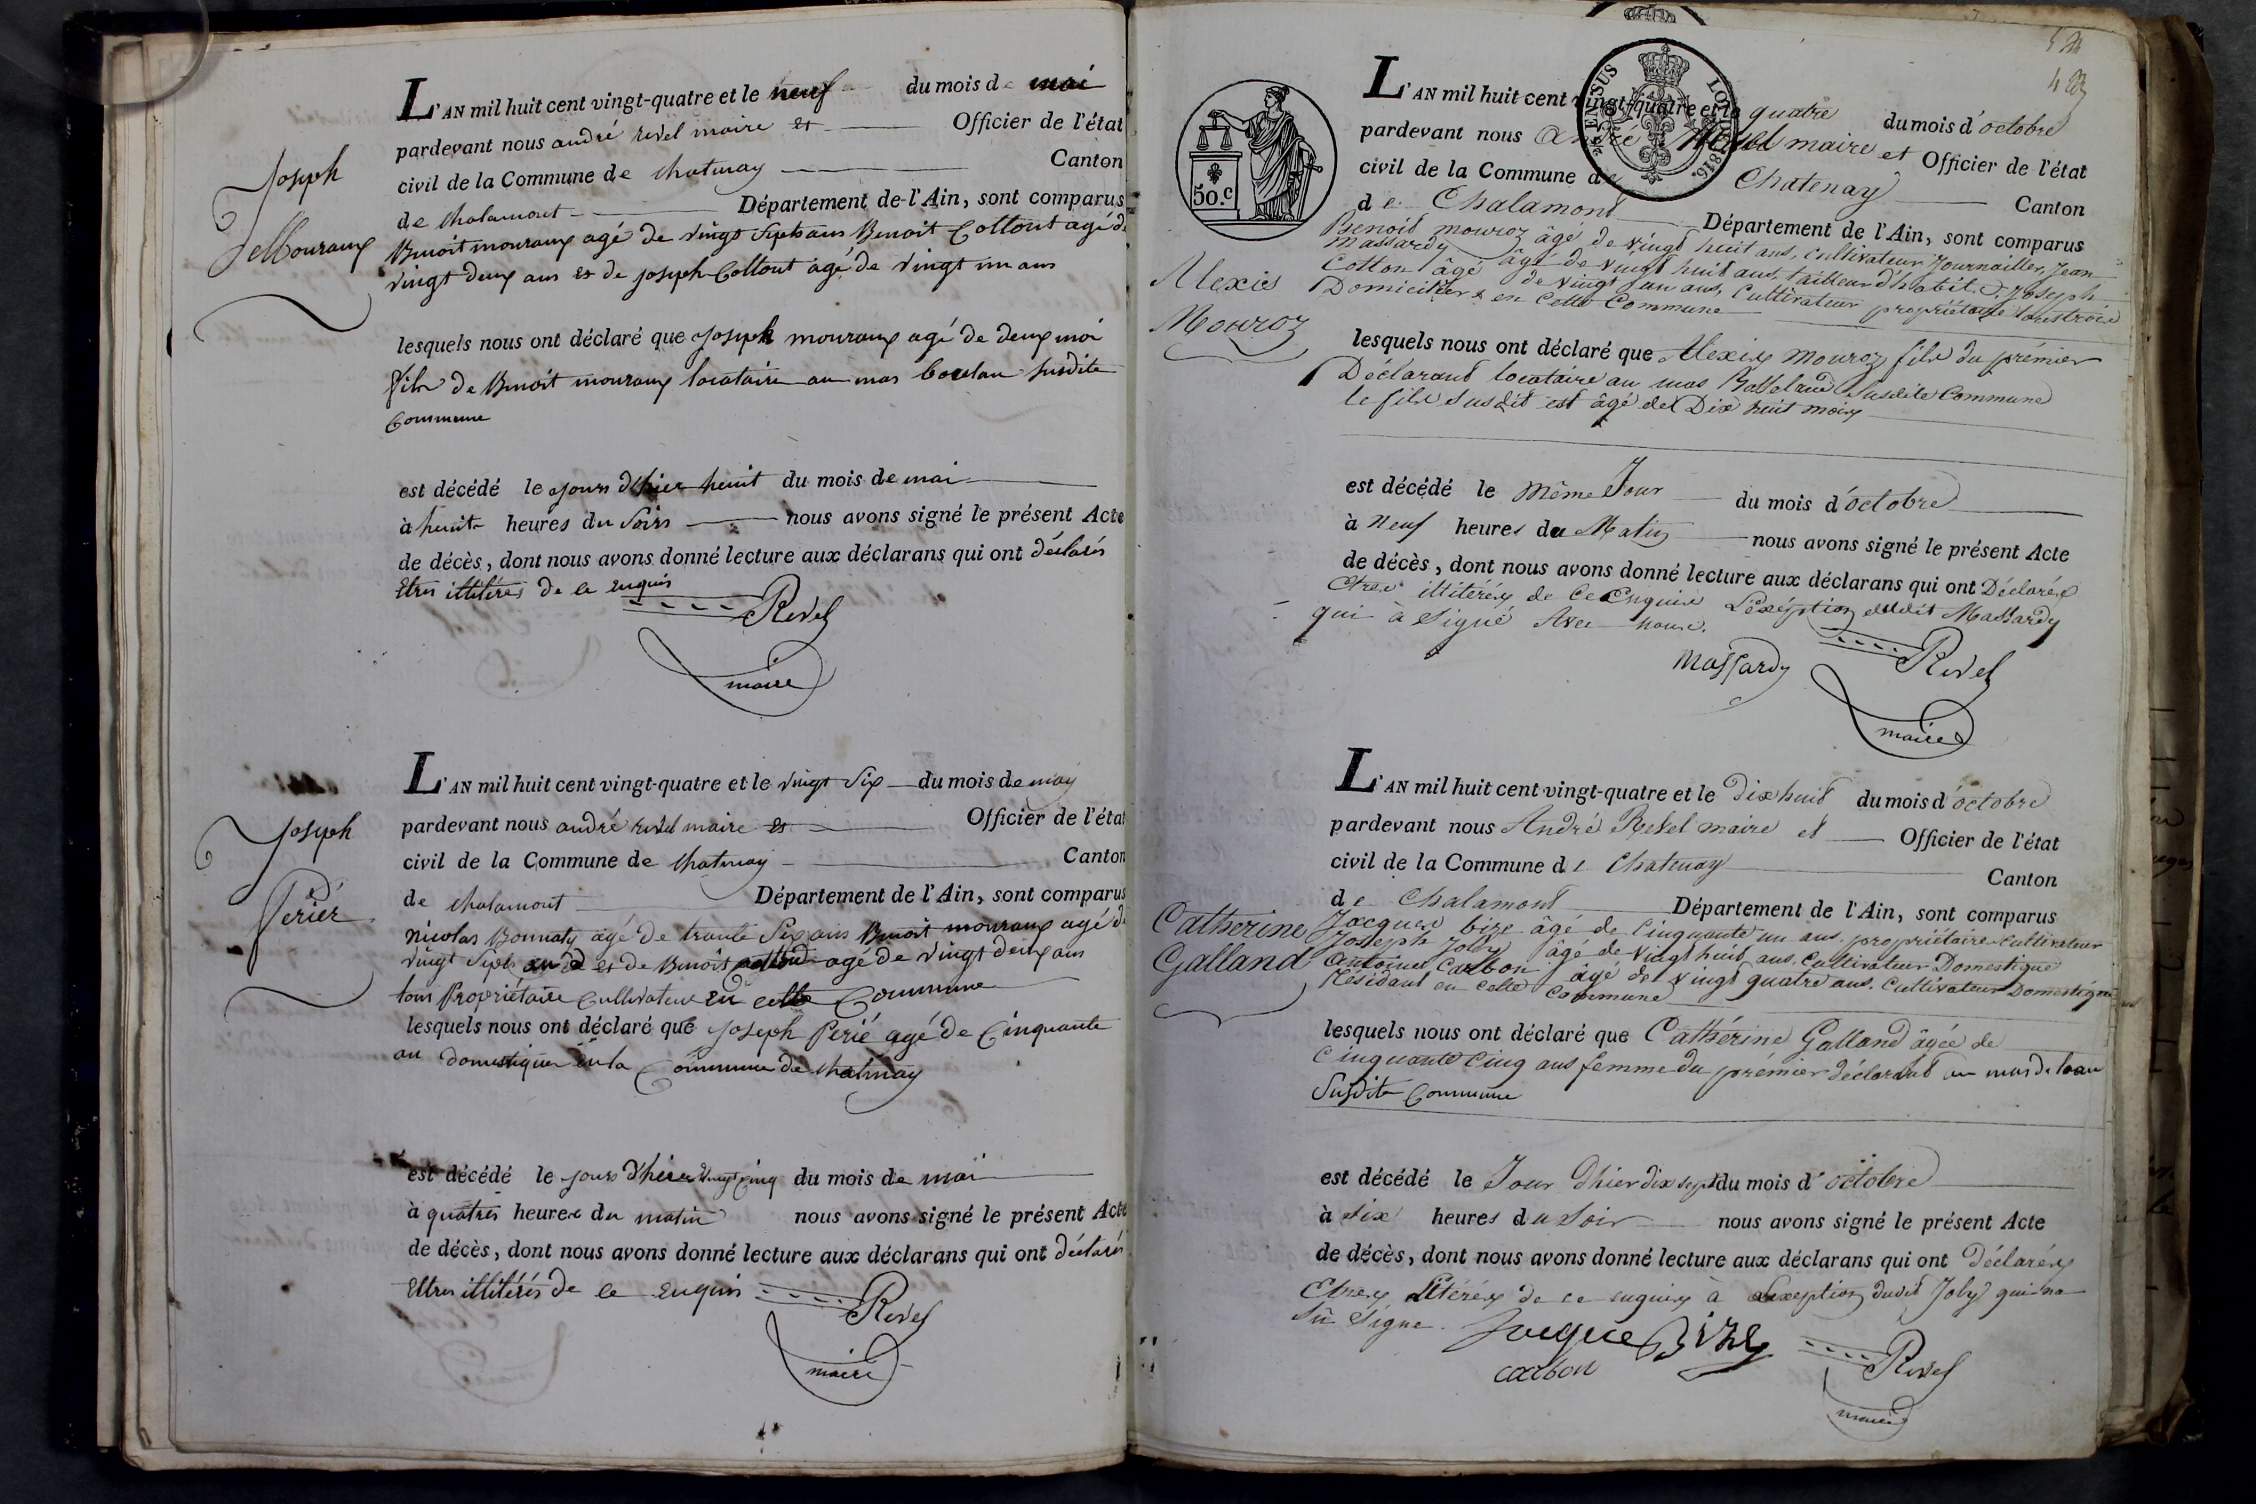 L'AN mil huit cent vingt-quatre et le neuf du mois de mai
pardevant nous andré revel maire et Officier de l'état
civil de la Commune de chatenay Canton
de chalamont Département de l'Ain, sont comparus
Benoit mouraux agé de vingt Sept ans Benoit Collout agé de
vingt deux ans et de joseph Collout agé de vingt un ans
Joseph
Mouraux
lesquels nous ont déclaré que joseph mouraux agé de deux moi
fils de Benoit mouraux locataire au mas susdite
Commune
est décédé le jours d'hier huit du mois de mai
à huit heures du Soirs nous avons signé le présent Acte
de décès, dont nous avons donné lecture aux déclarans qui ont déclarés
Etres illitérés de ce enquis
Revel
maire
L'AN mil huit cent vingt-quatre et le vingt Six du mois de may
pardevant nous andré revel maire et Officier de l'état
civil de la Commune de chatenay Canton
de chalamont Département de l'Ain, sont comparus
nicolas Bonnaty agé de trante Six ans Benoit mouraux agé de
vingt Sept et de Benoit agé de vingt deux ans
tous Propriétaire Cultivateur en cette Commune
Joseph
Périer
lesquels nous ont déclaré que joseph Perié agé de Cinquante
an domestique en la Commune de chatenay
est décédé le jours d'hier vingt cinq du mois de mai
à quatres heures du matin nous avons signé le présent Acte
de décès, dont nous avons donné lecture aux déclarans qui ont déclarés
Etres illitérés de ce enquis
Revel
maire
50.C
L'AN mil huit cent vingt-quatre et le quatre du mois d'octobre
pardevant nous André Revel maire et Officier de l'état
civil de la Commune de Chatenay Canton
de Chalamont Département de l'Ain, sont comparus
Benoit mouroz âgé de vingt huit ans, cultivateur Journailler, Jean
Massardy âgé de vingt huit ans, tailleur d'habit. & Joseph
Cotton âgé de vingt un ans, Cultivateur propriétaire tous trois
Domiciliers en Cette Commune
Alexis
Mouroz
lesquels nous ont déclaré que Alexis Mouroz fils du prémier
Déclarant locataire au mas susdite Commune
le fils susdit est âgé de Dix huit mois
est décédé le même Jour du mois d'octobre
à neuf heures du Matin nous avons signé le présent Acte
de décès, dont nous avons donné lecture aux déclarans qui ont Déclarés
etres illitérés de Ce Enquis L'exéption dudit Massardy
qui à Signé Avec nous.
Massardy
Revel
maire
L'AN mil huit cent vingt-quatre et le Dix huit du mois d'octobre
pardevant nous André Revel maire et Officier de l'état
civil de la Commune de Chatenay Canton
de Chalamont Département de l'Ain, sont comparus
Jacques bize âgé de Cinquante un ans propriétaire cultivateur
Joseph Joly âgé de vingt huit ans, Cultivateur Domestique
Antoine Carbon âgé de vingt quatre ans. Cultivateur Domestique
Résidant en Cette Commune
Catherine
Galland
lesquels nous ont déclaré que Cathérine Galland âgée de
Cinquante Cinq ans femme du prémier déclarant au mas de
Susdite Commune
est décédé le Jour d'hier dix sept du mois d'octobre
à Six heures du Soir nous avons signé le présent Acte
de décès, dont nous avons donné lecture aux déclarans qui ont Déclarés
Etres de ce enquis à Lexeption dudit Joly qui na
Su Signe.
Jacque Bize
carbon
Revel
maire